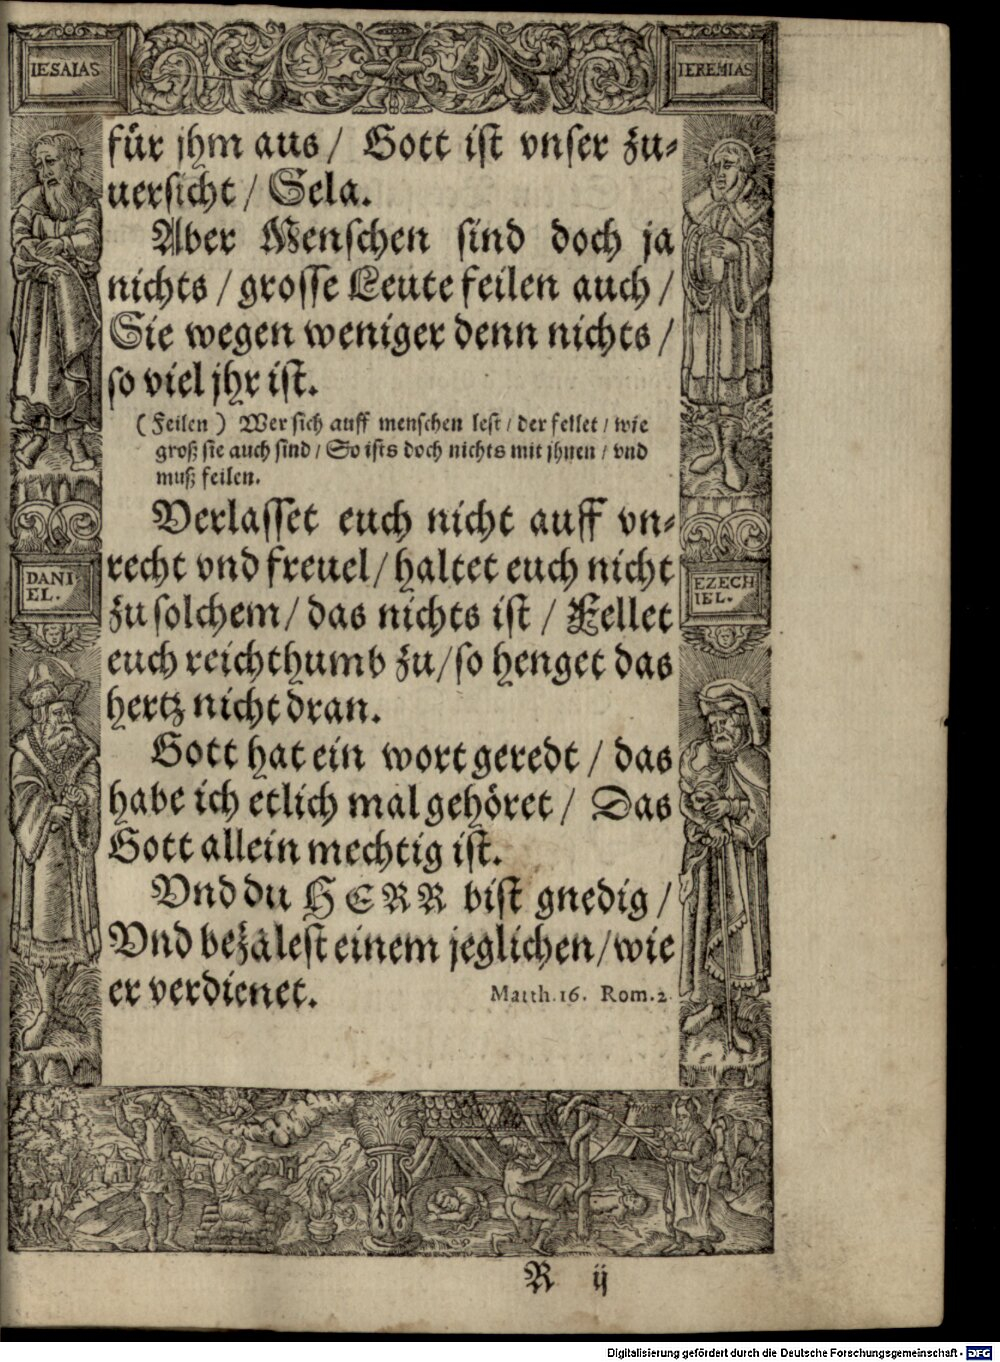 IESAIAS
IEREMIAS
für jhm aus / Gott ist vnser zu⸗
uersicht / Sela.
Aber Menschen sind doch ja
nichts / grosse Leute feilen auch /
Sie wegen weniger denn nichts /
so viel jhr ist.
(Feilen) Wer sich auff menschen lest / der feilet / wie
groß sie auch sind / So ists doch nichts mit jhnen / vnd
muß feilen.
Verlasset euch nicht auff vn⸗
recht vnd freuel / haltet euch nicht
zu solchem / das nichts ist / Fellet
euch reichthumb zu / so henget das
hertz nicht dran.
Gott hat ein wort geredt / das
habe ich etlich mal gehöret / Das
Gott allein mechtig ist.
Vnd du HERR bist gnedig /
Vnd bezalest einem jeglichen / wie
er verdienet.
Matth.16. Rom.2.
DANI
EL.
EZECH
IEL.
R ij
Digitalisierung gefördert durch die Deutsche Forschungsgemeinschaft - DFG